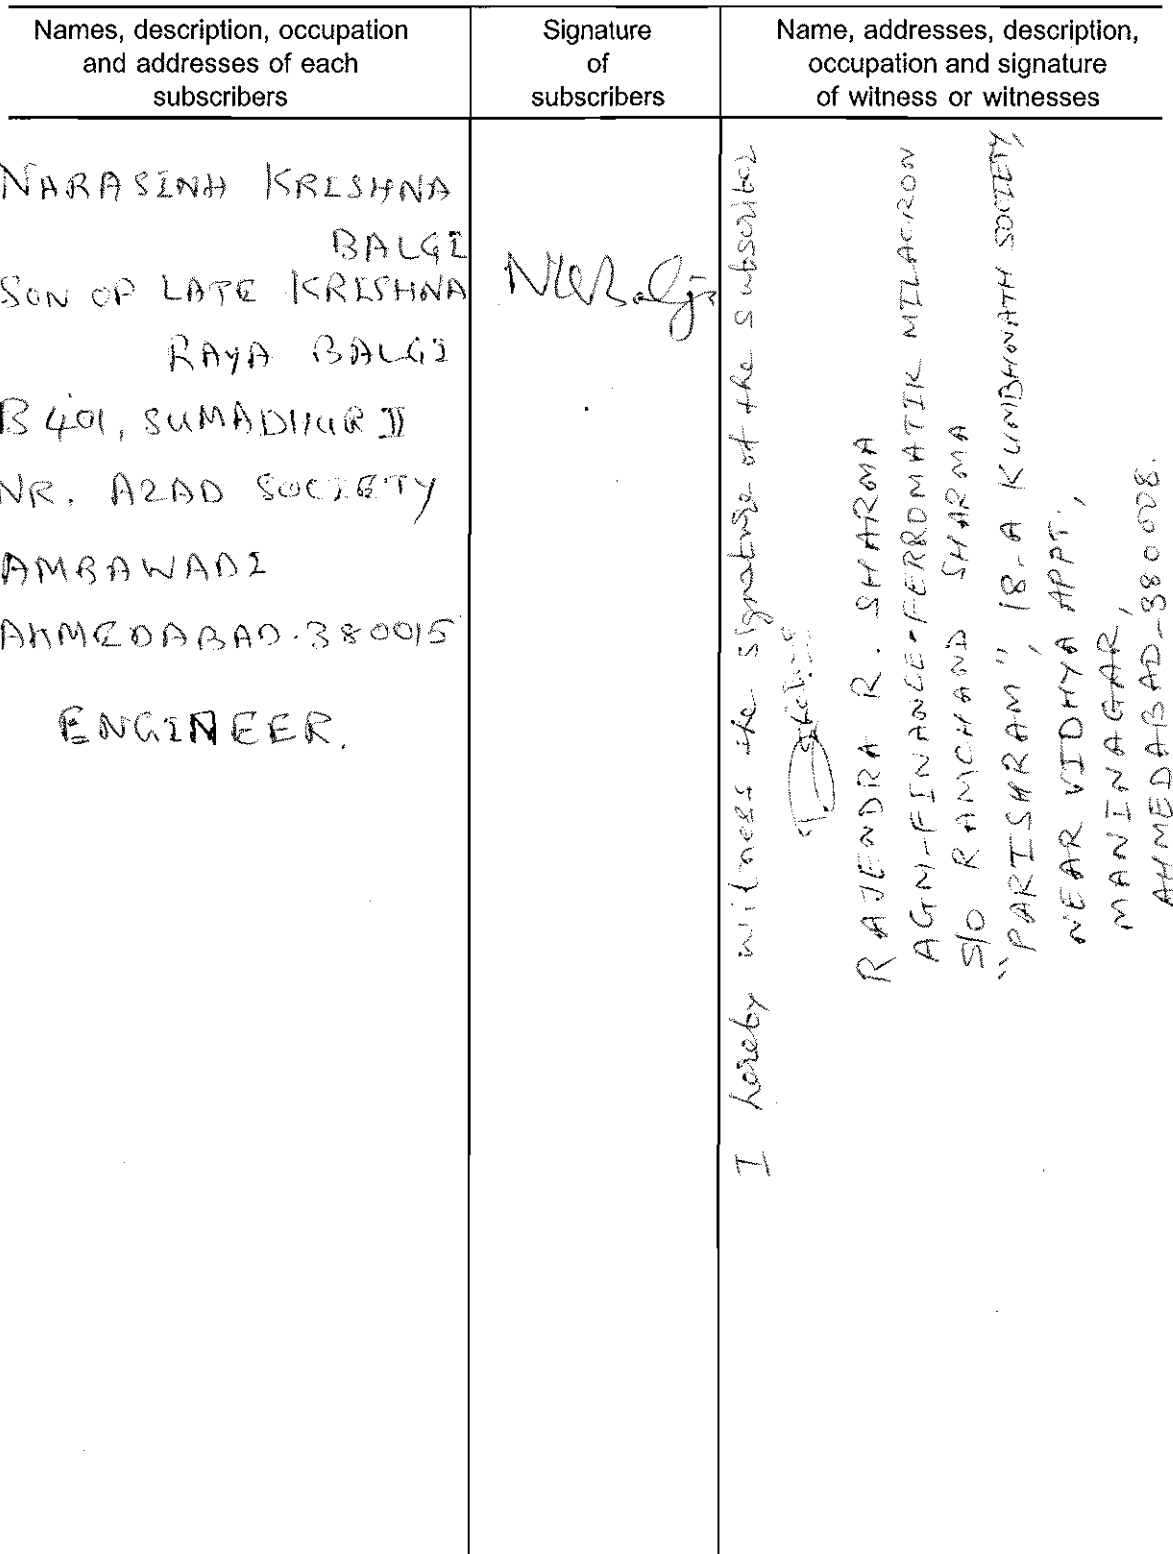 Names, description, occupation
and addresses of each
subscribers
Signature
of
subscribers
Name, addresses, description,
occupation and signature
of witness or witnesses
NARASINH KRISHNA
BALGI
SON OF LATE KRISHNA
RAYA BALGI
B 401, SUMADHUR II
NR. AZAD SOCIETY
AMBAWADI
AHMEDABAD-380015
ENGINEER.
NKBalgi
I hereby witness the signature of the subscriber
RAJENDRA R. SHARMA
AGM-FINANCE-FERROMATIK MILACRON
S/O RAMCHAND SHARMA
"PARISHRAM", 18-A KUMBHNATH SOCIETY,
NEAR VIDHYA APPT.,
MANINAGAR,
AHMEDABAD-380008.